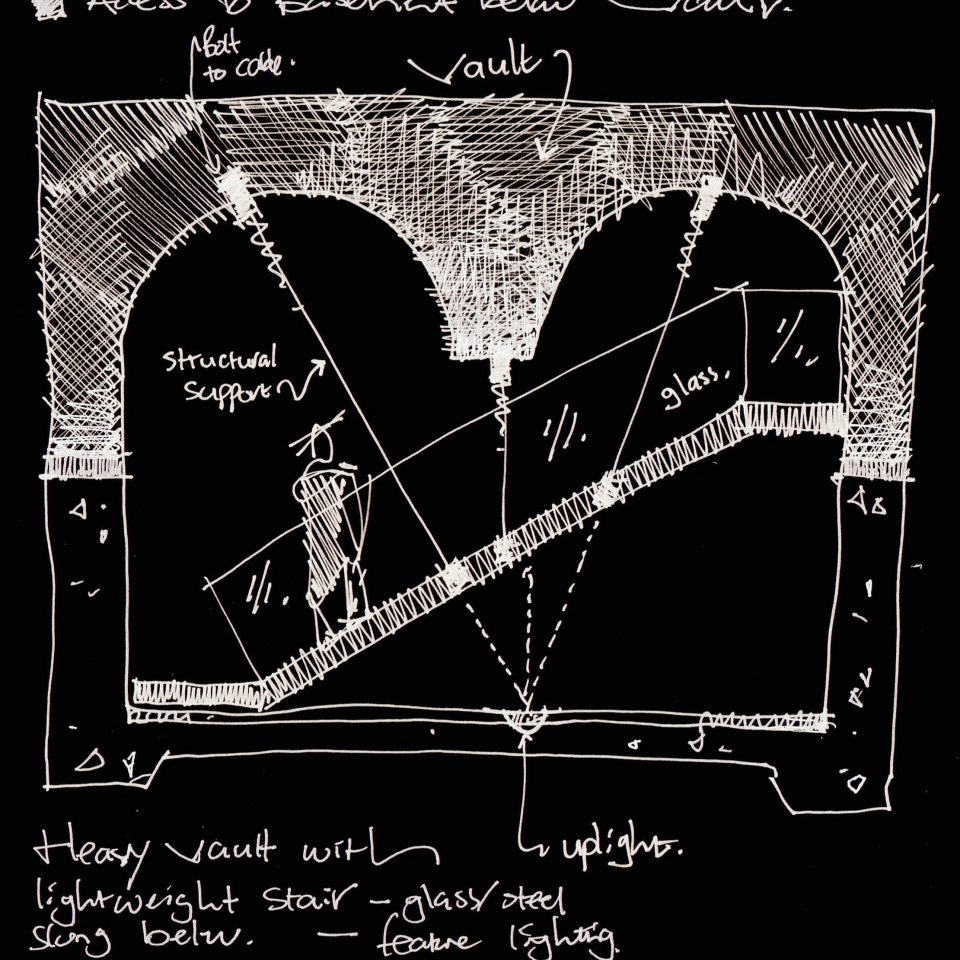 Access to Basement below
Bolt
to cable.
Vault
structural
support
glass.
uplight.
Heavy vault with
lightweight stair - glass/steel
slung below. - feature lighting.